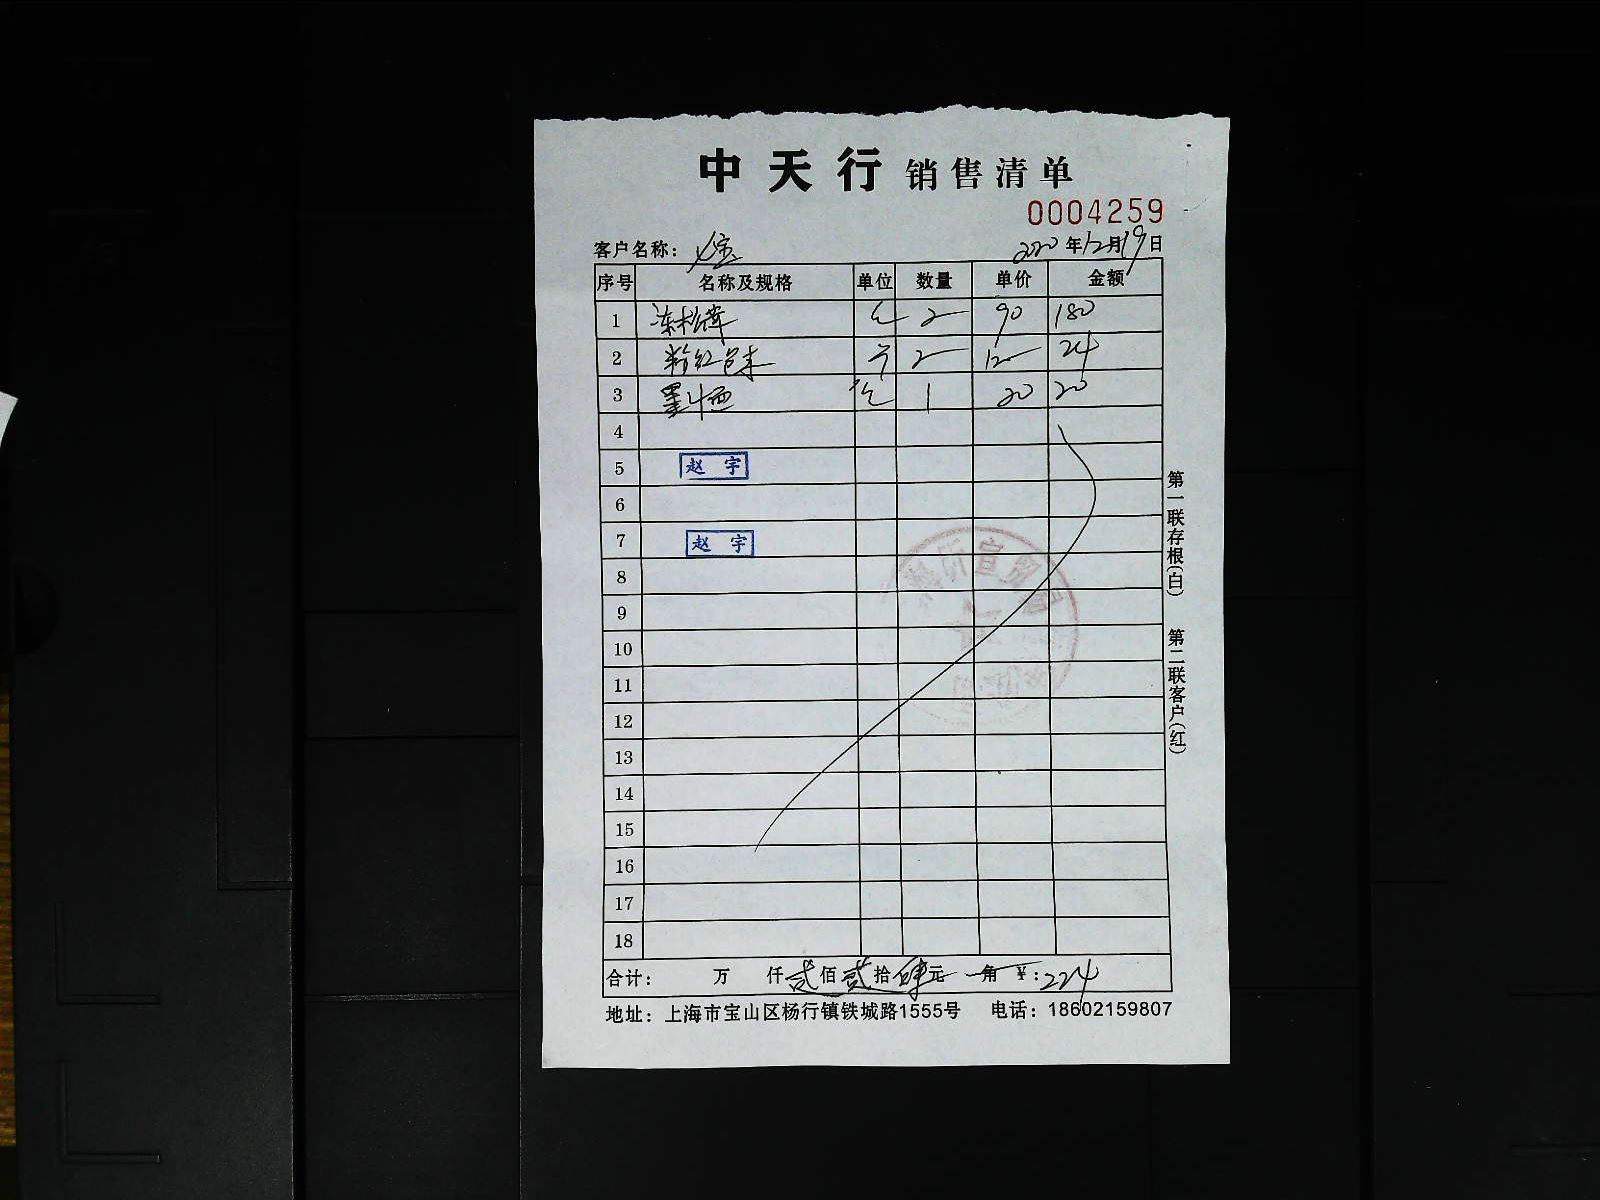 中天行 销售清单
0004259
客户名称： 2020年12月19日
序号 名称及规格 单位 数量 单价 金额
1 冻松茸 2 90 180
2 粉红色末 2 12 24
3 1 20 20
4
5 赵宇
6
7 赵宇
8
9
10
11
12
13
14
15
16
17
18
合计： 万 仟贰佰贰拾肆元 角 ￥：224
地址：上海市宝山区杨行镇铁城路1555号 电话：18602159807
第一联存根(白) 第二联客户(红)